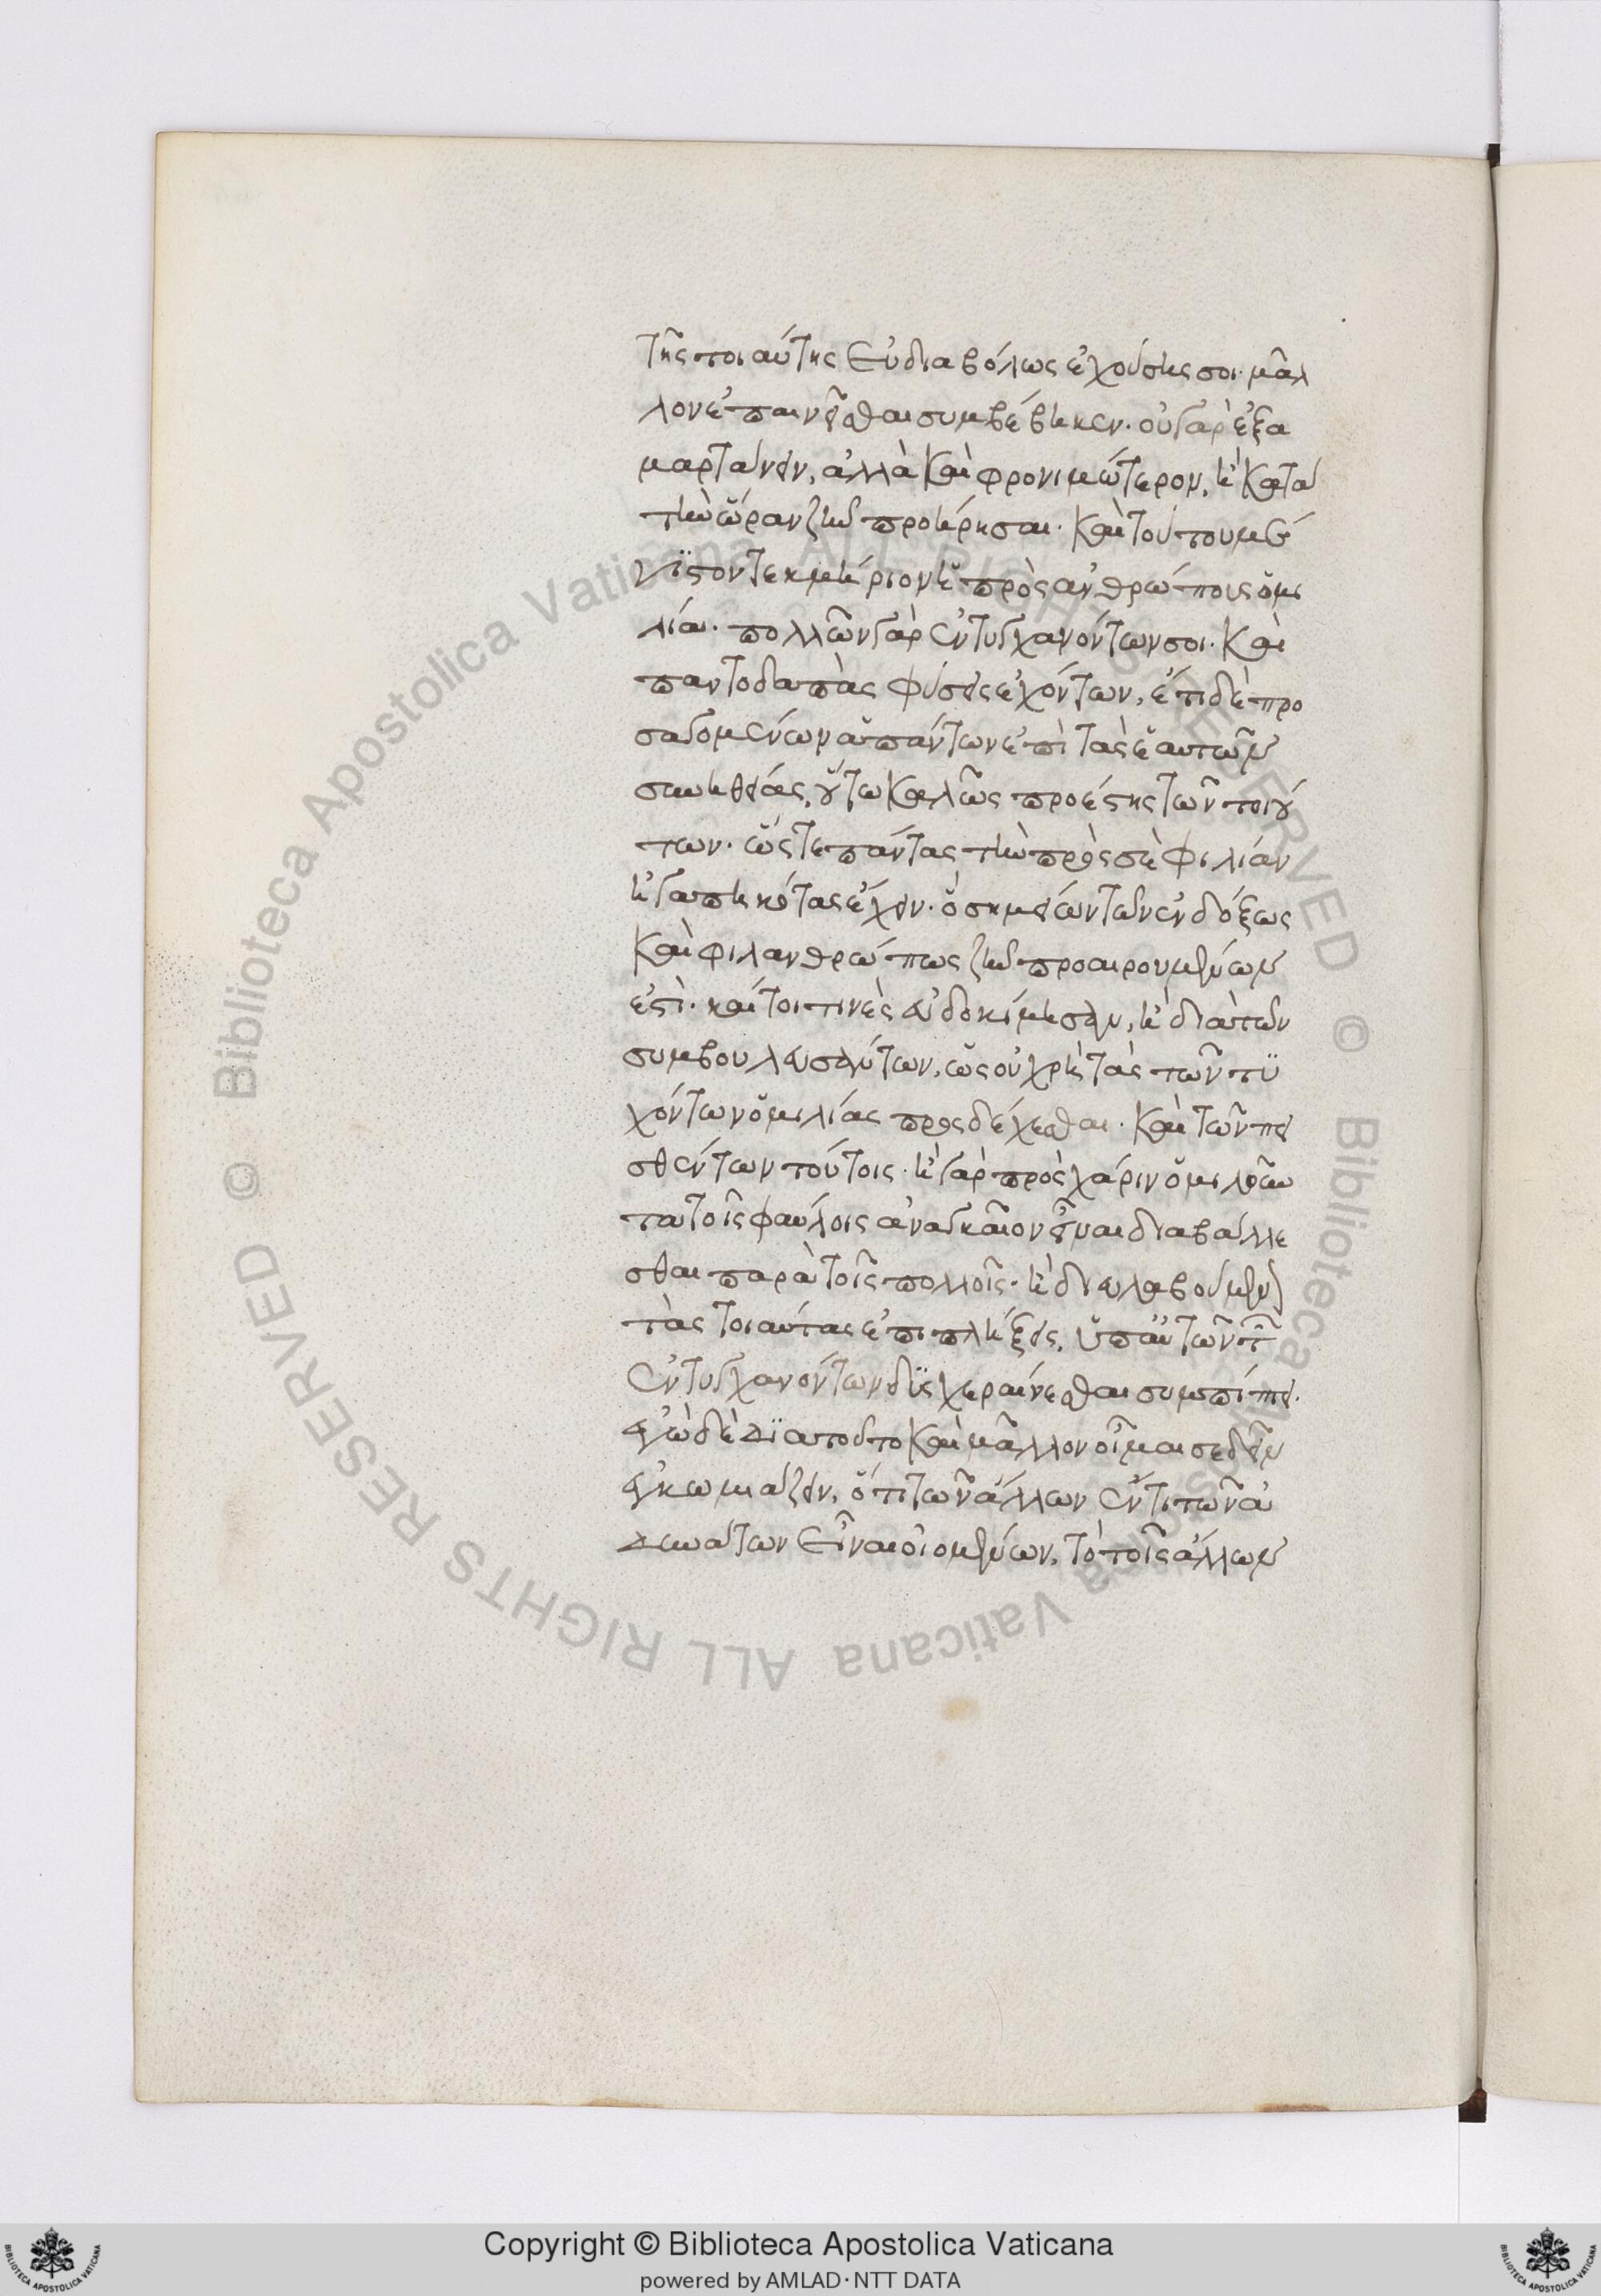 τῆς τοιαύτης εὐδιαβόλως ἐχούσης σοι μᾶλ
λον ἐπαινεῖσθαι συμβέβηκεν. οὐ γὰρ ἐξα
μαρτάνειν, ἀλλὰ καὶ φρονιμώτερον, ἢ κατὰ
τὴν ὥραν ζῆν προῄρησαι. καὶ τούτου μέ
γιστον τεκμήριον ἡ πρὸς ἀνθρώπους ὁμι
λία. πολλῶν γὰρ ἐντυγχανόντων σοι. καὶ
παντοδαπὰς φύσεις ἐχόντων, ἔτι δὲ προ
σαγομένων ἁπάντων ἐπὶ τὰς ἑαυτῶν
συνηθείας, οὕτω καλῶς προέστης τῶν τοιού
των. ὥστε πάντας τὴν πρὸς σὲ φιλίαν
ἠγαπηκότας ἔχειν. ὃ σημεῖον τῶν ἐνδόξως
καὶ φιλανθρώπως ζῆν προαιρουμένων
ἐστί. καίτοι τινὲς εὐδοκίμησαν, ἢ διὰ τῶν
συμβουλευσάντων, ὡς οὐ χρὴ τὰς τῶν τυ
χόντων ὁμιλίας προσδέχεσθαι. καὶ τῶν πει
σθέντων τούτοις. ἢ γὰρ πρὸς χάριν ὁμιλοῦν
τα τοῖς φαύλοις ἀναγκαῖον εἶναι διαβάλλε
σθαι παρὰ τοῖς πολλοῖς. ἢ διευλαβούμεν
τὰς τοιαύτας ἐπιπλήξεις, ὑπ' αὐτῶν τῶν
ἐντυγχανόντων δυσχεραίνεσθαι συμπίπτει.
ἐγὼ δὲ διὰ τοῦτο καὶ μᾶλλον οἶμαί σε δεῖν
ἐγκωμιάζειν, ὅτι τῶν ἄλλων ἕν τι τῶν ἀ
δυνάτων εἶναι οἰομένων, τὸ τοῖς ἄλλων
Copyright © Biblioteca Apostolica Vaticana
powered by AMLAD·NTT DATA